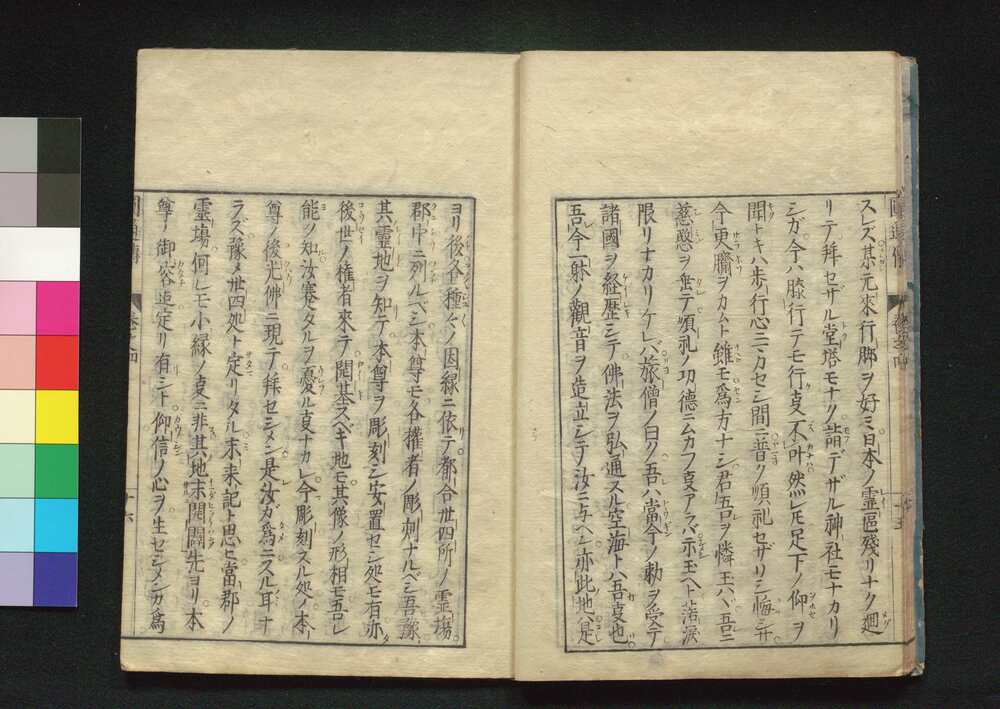 スレズ某元來行脚ヲ好ミ日本ノ霊區残リナク廻
リテ拜セザル堂塔モナク詣デザル神社モナカリ
シガ今ハ膝行テモ行㕝不叶然レモ足下ノ仰ヲ
聞トキハ歩行心ニカセシ間ニ普ク順礼セザリシ悔シサ
今更臍ヲカムト雖モ為方ナシ君吾ヲ憐玉ハヽ吾ニ
慈愍ヲ垂テ順礼ノ功徳ニムカフ㕝アラバ示玉ヘト落涙
限リナカリケレバ旅僧ノ曰ク吾ハ當今ノ勅ヲ受テ
諸國ヲ経歴シテ佛法ヲ弘通スル空海トハ吾㕝也
吾今一躰ノ觀音ヲ造立シテ汝ニ与ヘン亦此地ハ是
ヨリ後各種々ノ因縁ニ依テ都合丗四所ノ霊場
郡中ニ列ルベシ本尊モ各權者ノ彫刻ナルベシ吾豫
其靈地ヲ知テ本尊ヲ彫刻シ安置セン処モ有亦
後世ノ権者來テ開基スベキ地モ其像ノ形相モ吾レ
能ク知汝蹇タルヲ憂ル㕝ナカレ今彫刻スル処ノ本
尊ノ後光佛ニ現テ拜セシメン是汝ガ為ニスル耳ナ
ラズ豫メ丗四処ト定リタル未来記ト思セ當郡ノ
霊場何レモ小縁ノ㕝ニ非其地未開闢先ヨリ本
尊ノ御容造定リ有シト仰信ノ心ヲ生セシメンガ為
巻之四
十六